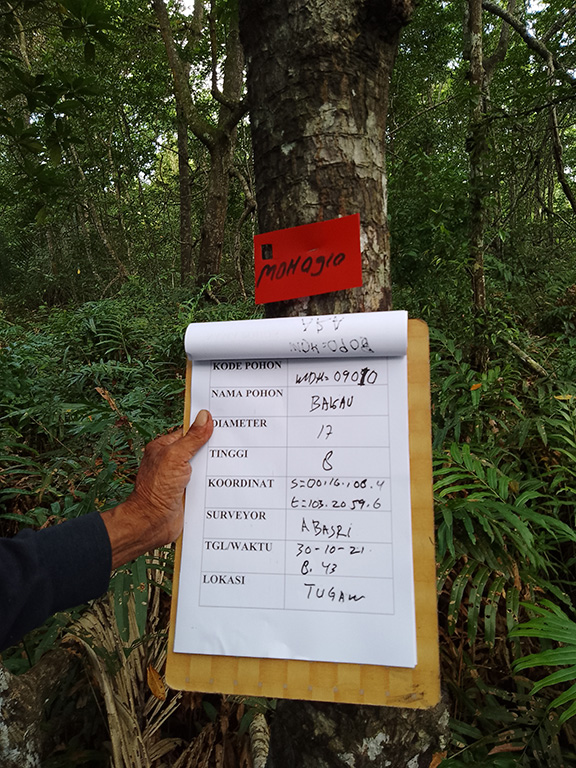 MDH0910
KODE POHON MDH-0910
NAMA POHON BAKAU
DIAMETER 17
TINGGI 8
KOORDINAT S=00.16.108.4
E=103.20 59.6
SURVEYOR ABASRI
TGL/WAKTU 30-10-21
8.43
LOKASI TUGAW